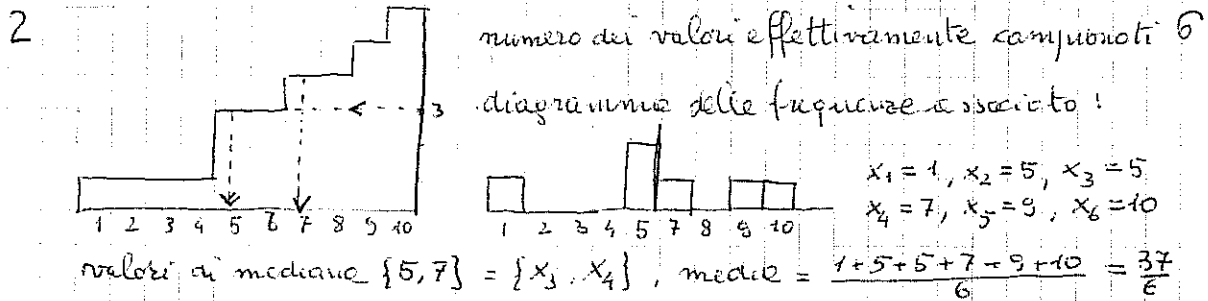 2
numero dei valori effettivamente campionati 6
diagramma delle frequenze associato :
3
x₁ = 1, x₂ = 5, x₃ = 5
x₄ = 7, x₅ = 9, x₆ = 10
1 2 3 4 5 6 7 8 9 10
1 2 3 4 5 7 8 9 10
valori di mediana {5,7} = {x₃, x₄}, media = (1+5+5+7+9+10)/6 = 37/6